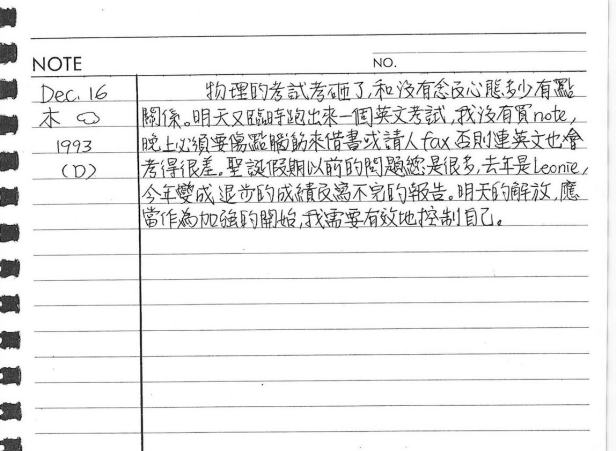 NOTE
NO.
Dec. 16
木
1993
(D)
物理的考試考砸了,和沒有念及心態多少有點
關係。明天又臨時跑出來一個英文考試,我沒有買note,
晚上必須要傷點腦筋來借書或請人fax否則連英文也會
考得很差。聖誕假期以前的問題總是很多,去年是Leonie,
今年變成退步的成績及寫不完的報告。明天的解放,應
當作為加強的開始,我需要有效地控制自己。